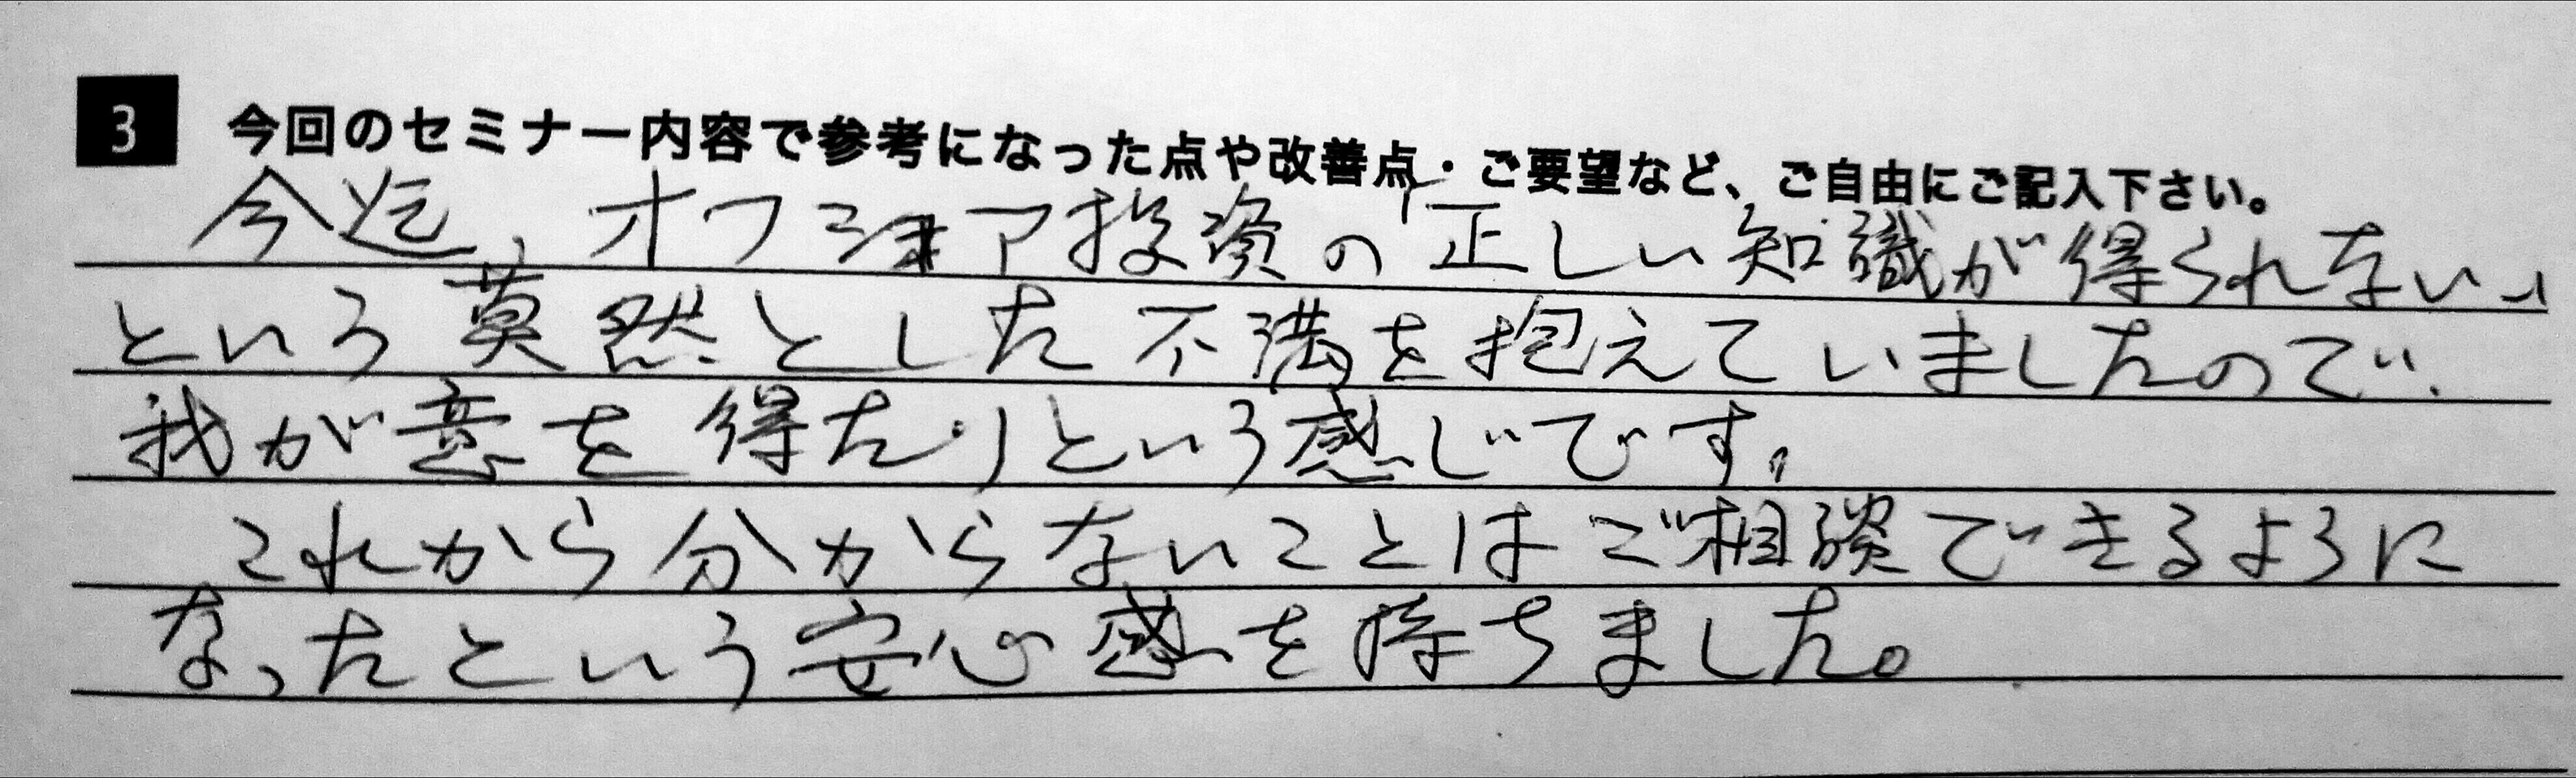 3 今回のセミナー内容で参考になった点や改善点・ご要望など、ご自由にご記入下さい。
今迄、オフショア投資の「正しい知識が得られない」
という莫然とした不満を抱えていましたので、
我が意を得たりという感じです。
これから分からないことはご相談できるように
なったという安心感を持ちました。